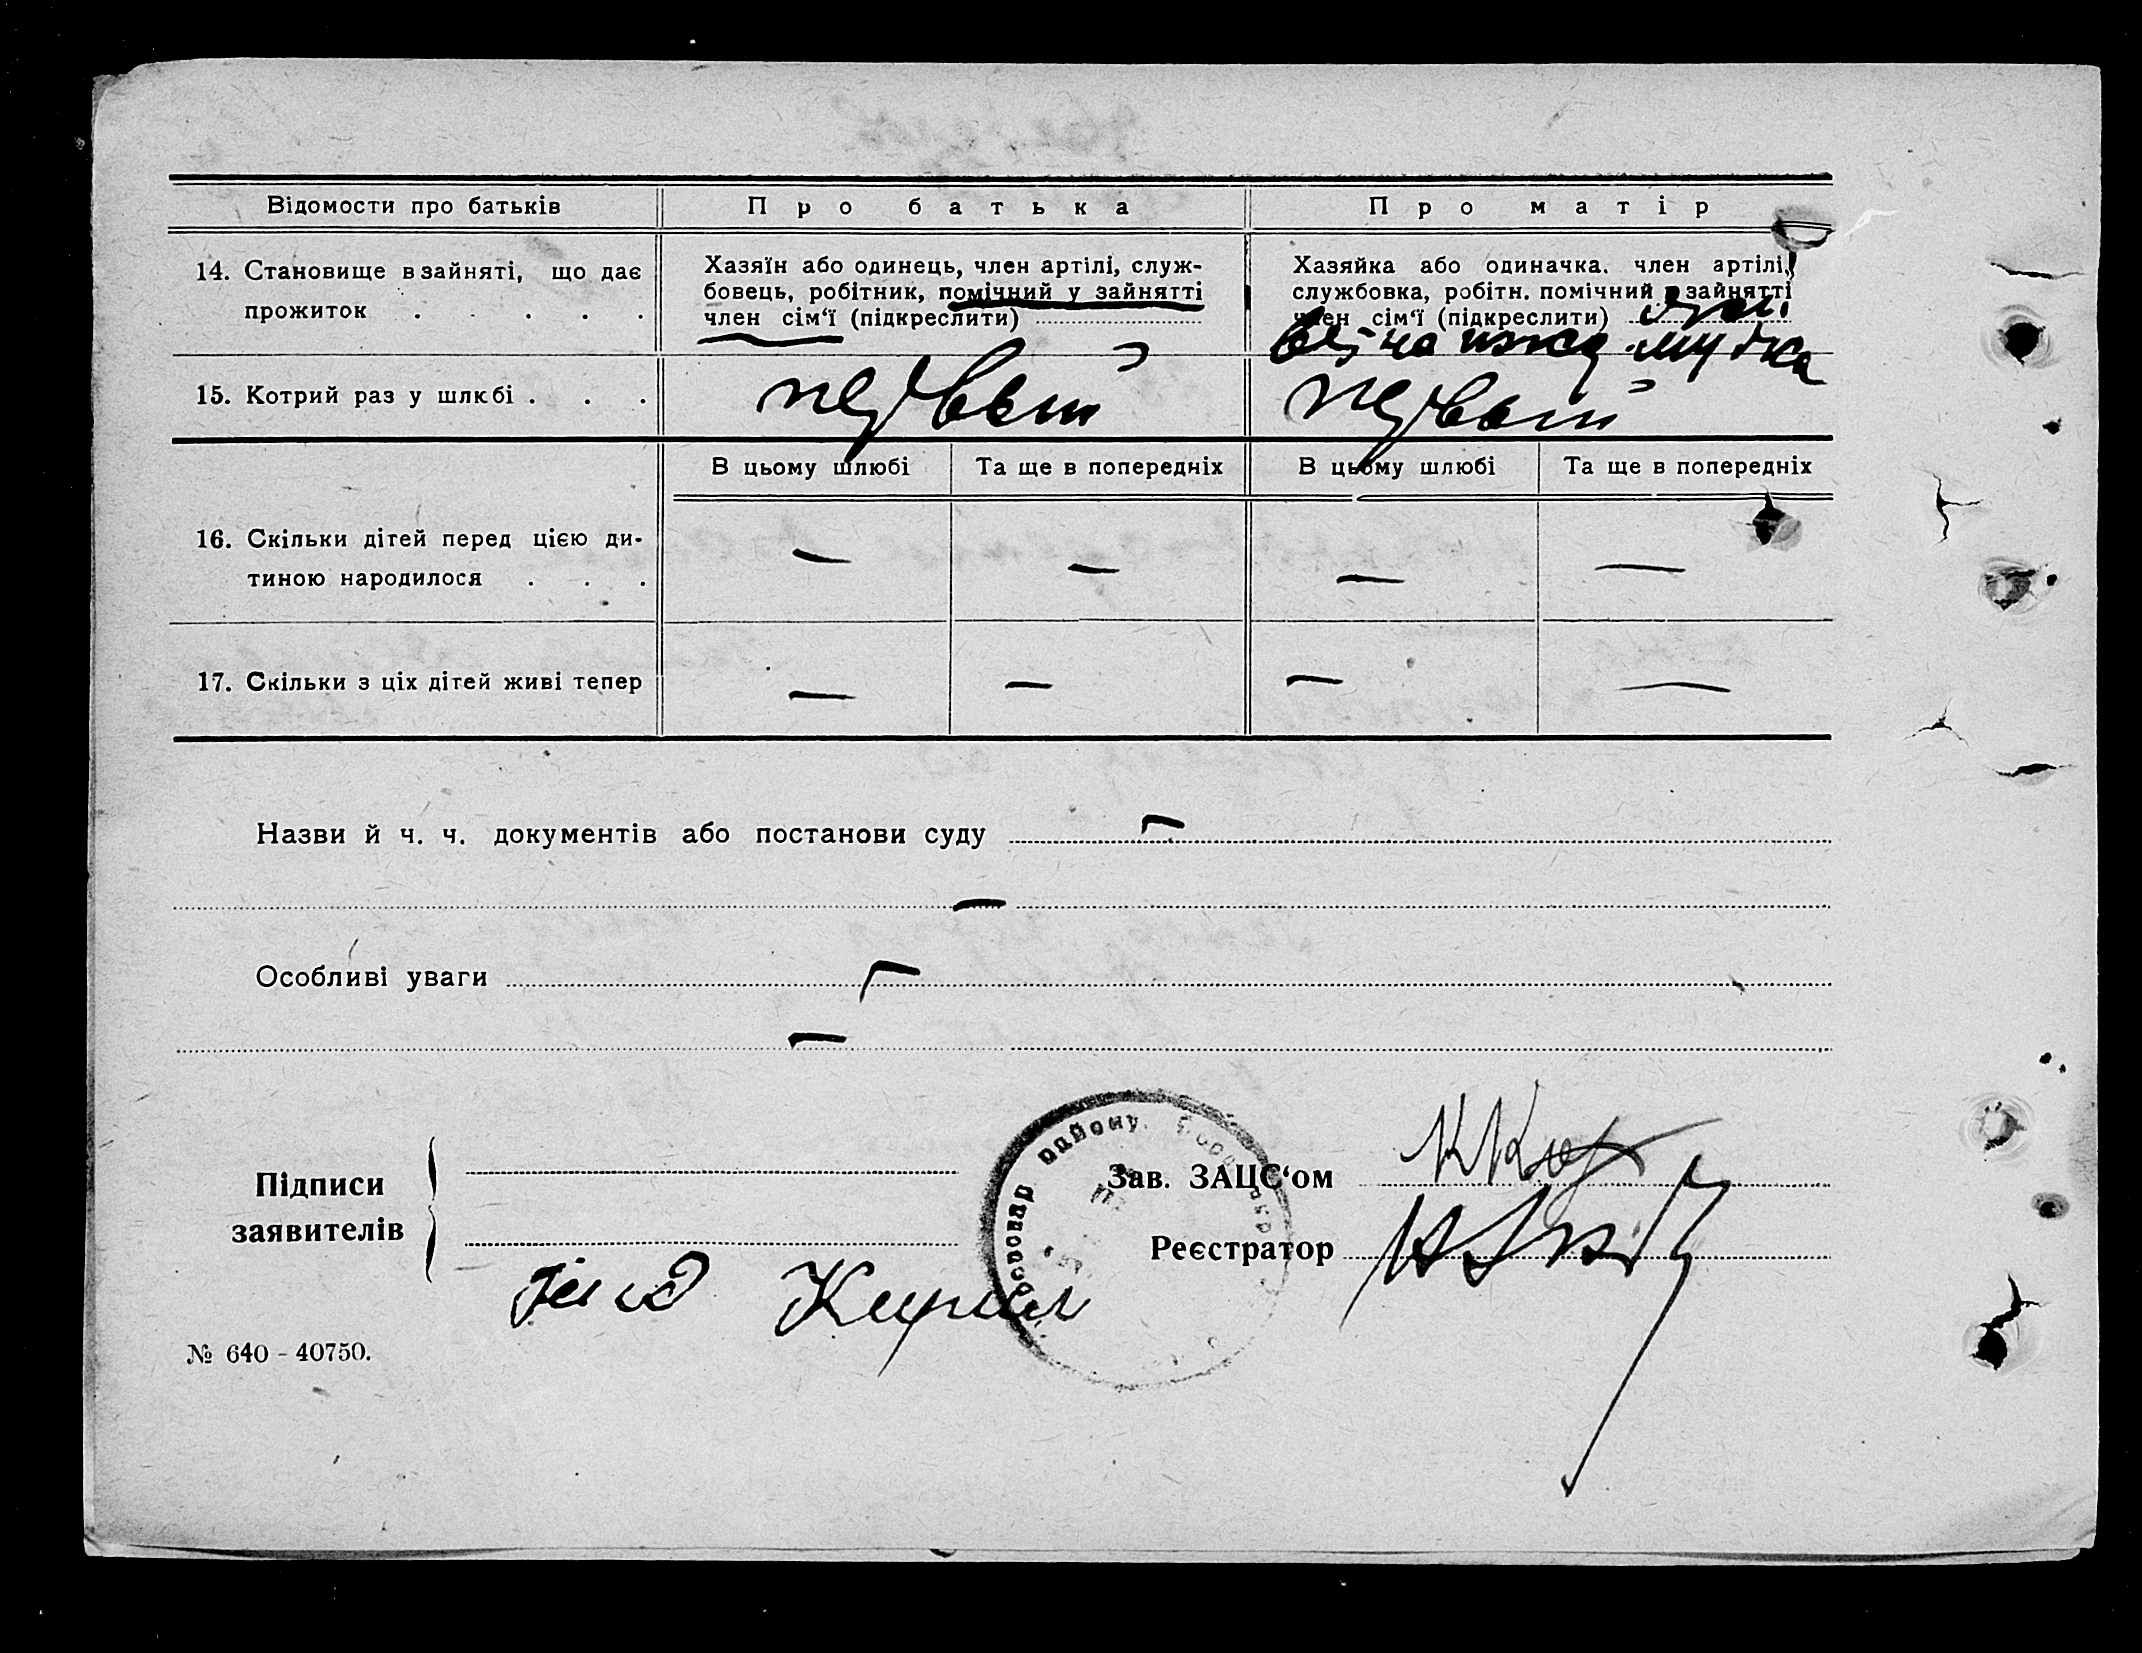 Відомости про батьків
Про батька
Про матір
14. Становище в зайняті, що дає
прожиток . . . . .
Хазяїн або одинець, член артілі, служ-
бовець, робітник, помічний у зайнятті
член сім‘ї (підкреслити)
Хазяйка або одиначка. член артілі,
службовка, робітн. помічний у зайнятті
член сім‘ї (підкреслити)
на мужа
15. Котрий раз у шлюбі . . .
первый
первый
В цьому шлюбі
Та ще в попередніх
В цьому шлюбі
Та ще в попередніх
16. Скільки дітей перед цією ди-
тиною народилося . . .
— — — —
17. Скільки з ціх дітей живі тепер
— — — —
Назви й ч. ч. документів або постанови суду —
—
Особливі уваги —
—
Підписи
заявителів
Зав. ЗАЦС‘ом
Реєстратор
району
Кирил
№ 640 - 40750.